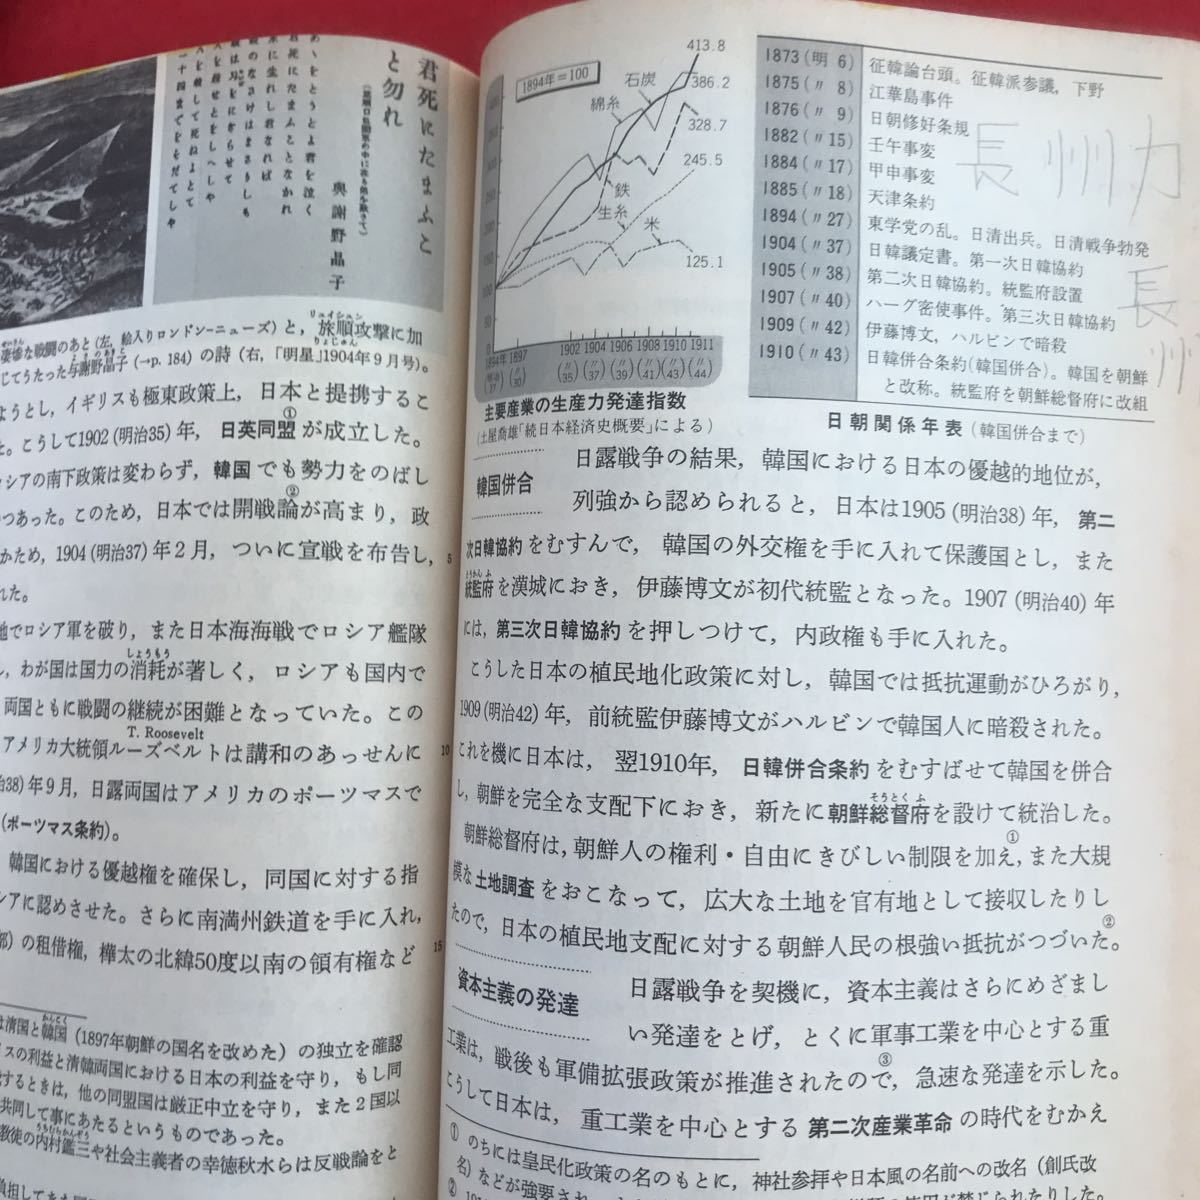 君死にたまふこ
と勿れ
(旅順口包囲軍の中に在る弟を歎きて)
與謝野晶子
あゝをとうとよ君を泣く
君死にたまふことなかれ
末に生れし君なれば
親のなさけはまさりしも
親は刃をにぎらせて
人を殺せとをしへしや
人を殺して死ねよとて
二十四までをそだてしや
凄惨な戦闘のあと(左, 絵入りロンドン=ニューズ)と, 旅順攻撃に加
じてうたった与謝野晶子 (→p. 184) の詩 (右, 「明星」1904年9月号)。
ようとし, イギリスも極東政策上, 日本と提携するこ
た。こうして1902 (明治35) 年, 日英同盟①が成立した。
シアの南下政策は変わらず, 韓国②でも勢力をのばし
つあった。このため, 日本では開戦論が高まり, 政
かため, 1904 (明治37) 年2月, ついに宣戦を布告し, 5
れた。
地でロシア軍を破り, また日本海海戦でロシア艦隊
し, わが国は国力の消耗が著しく, ロシアも国内で
両国ともに戦闘の継続が困難となっていた。この
アメリカ大統領ルーズベルト T. Roosevelt は講和のあっせんに 10
治38) 年9月, 日露両国はアメリカのポーツマスで
(ポーツマス条約)。
韓国における優越権を確保し, 同国に対する指
シアに認めさせた。さらに南満州鉄道を手に入れ,
部) の租借権, 樺太の北緯50度以南の領有権など 15
は清国と韓国 (1897年朝鮮の国名を改めた) の独立を確認
スの利益と清韓両国における日本の利益を守り, もし同
するときは, 他の同盟国は厳正中立を守り, また2国以
共同して事にあたるというものであった。
教徒の内村鑑三や社会主義者の幸徳秋水らは反戦論をと
1894年=100
石炭
綿糸
鉄
生糸
米
413.8
386.2
328.7
245.5
125.1
1894年 1897 1902 1904 1906 1908 1910 1911
(明治27) (〃30) (〃35) (〃37) (〃39) (〃41) (〃43) (〃44)
主要産業の生産力発達指数
(土屋喬雄「続日本経済史概要」による)
1873 (明 6) 征韓論台頭。征韓派参議, 下野
1875 (〃 8) 江華島事件
1876 (〃 9) 日朝修好条規
1882 (〃15) 壬午事変
1884 (〃17) 甲申事変
1885 (〃18) 天津条約
1894 (〃27) 東学党の乱。日清出兵。日清戦争勃発
1904 (〃37) 日韓議定書。第一次日韓協約
1905 (〃38) 第二次日韓協約。統監府設置
1907 (〃40) ハーグ密使事件。第三次日韓協約
1909 (〃42) 伊藤博文, ハルビンで暗殺
1910 (〃43) 日韓併合条約(韓国併合)。韓国を朝鮮
と改称。統監府を朝鮮総督府に改組
長州力
長
州
日朝関係年表 (韓国併合まで)
韓国併合
日露戦争の結果, 韓国における日本の優越的地位が,
列強から認められると, 日本は1905 (明治38) 年, 第二
次日韓協約をむすんで, 韓国の外交権を手に入れて保護国とし, また
統監府を漢城におき, 伊藤博文が初代統監となった。1907 (明治40) 年
には, 第三次日韓協約を押しつけて, 内政権も手に入れた。
こうした日本の植民地化政策に対し, 韓国では抵抗運動がひろがり,
1909 (明治42) 年, 前統監伊藤博文がハルビンで韓国人に暗殺された。
これを機に日本は, 翌1910年, 日韓併合条約をむすばせて韓国を併合
し, 朝鮮を完全な支配下におき, 新たに朝鮮総督府を設けて統治した。
朝鮮総督府は, 朝鮮人の権利・自由にきびしい制限を加え①, また大規
模な土地調査をおこなって, 広大な土地を官有地として接収したりし
たので, 日本の植民地支配に対する朝鮮人民の根強い抵抗がつづいた②。
資本主義の発達
日露戦争を契機に, 資本主義はさらにめざまし
い発達をとげ, とくに軍事工業を中心とする重
工業は, 戦後も軍備拡張政策が推進されたので③, 急速な発達を示した。
こうして日本は, 重工業を中心とする第二次産業革命の時代をむかえ
① のちには皇民化政策の名のもとに, 神社参拝や日本風の名前への改名 (創氏改
名) などが強要され
②